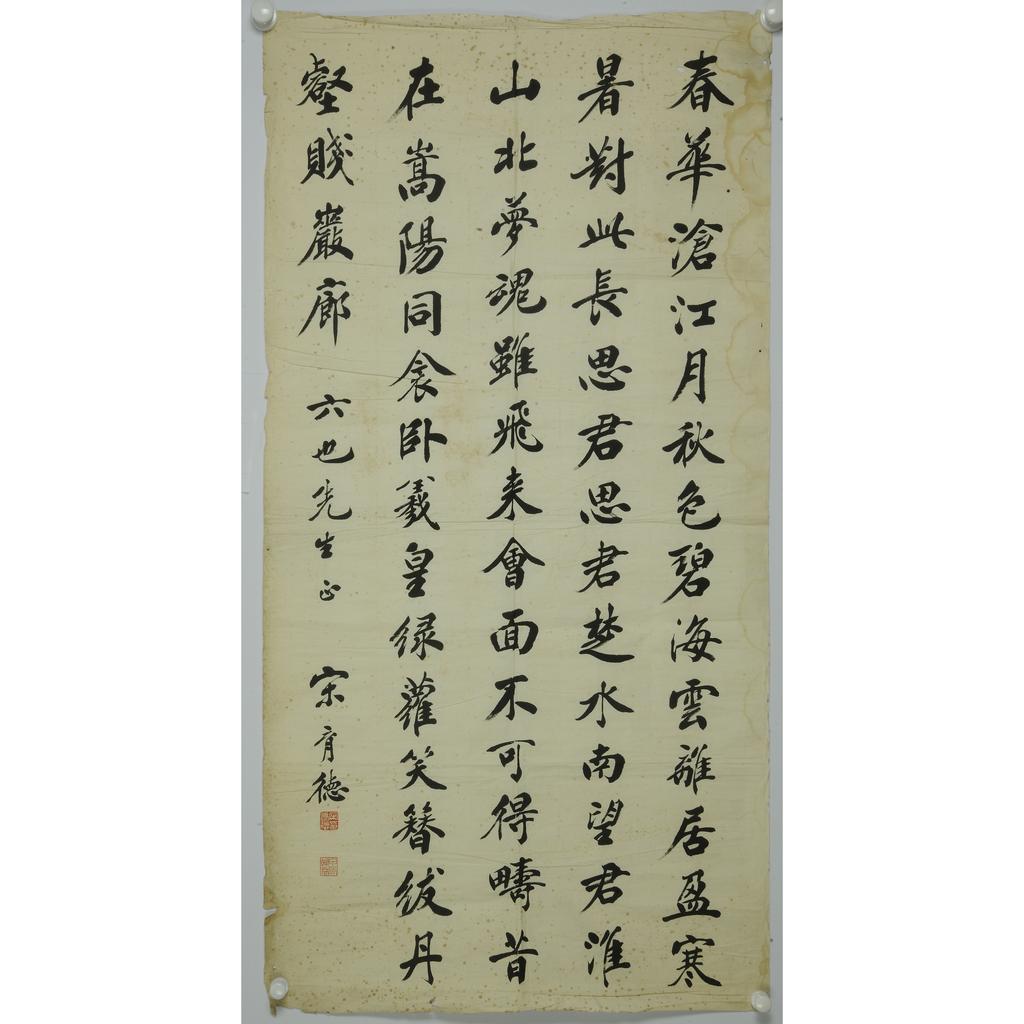 春華滄江月秋色碧海雲離居盈寒
暑對此長思君思君楚水南望君淮
山北夢魂雖飛来會面不可得疇昔
在嵩陽同衾卧羲皇緑蘿笑簪紱丹
壑賤巖廊 六也先生正 宋育德